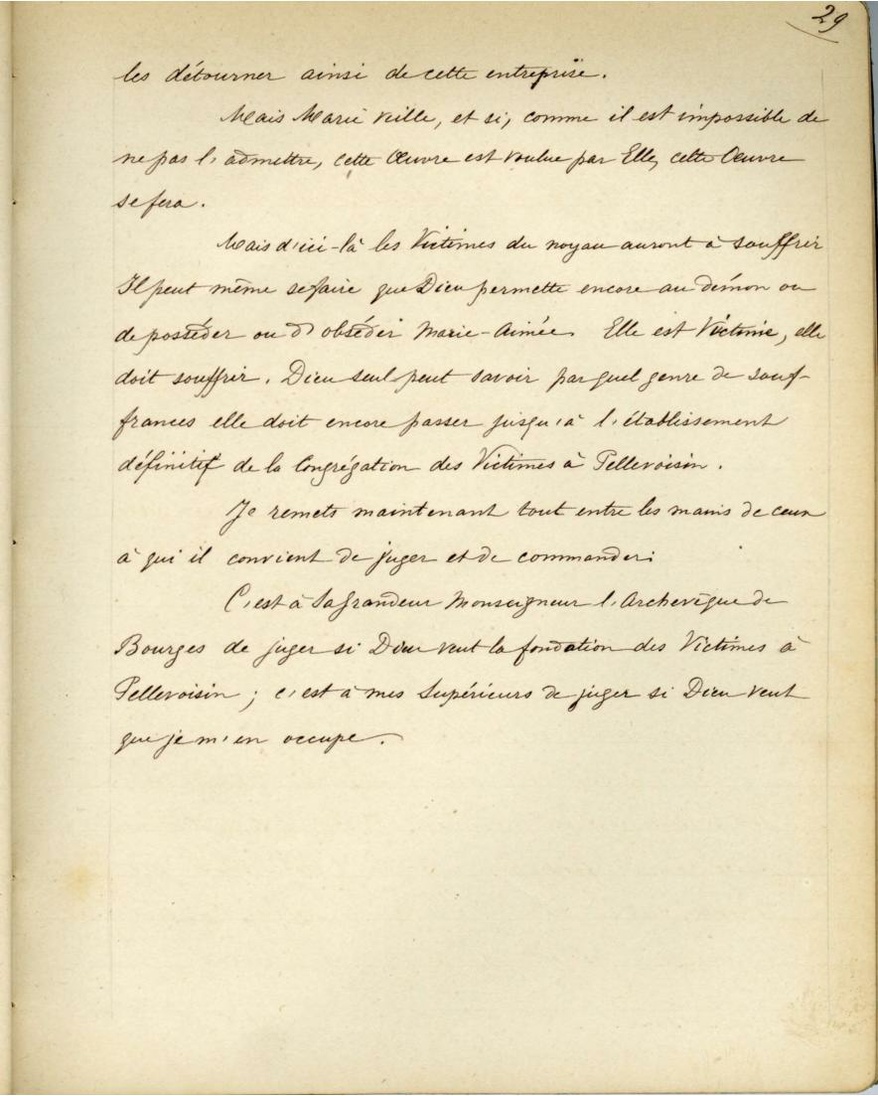 29
les détourner ainsi de cette entreprise.
Mais Marie veille, et si, comme il est impossible de
ne pas l'admettre, cette Œuvre est voulue par Elle, cette Œuvre
se fera.
Mais d'ici-là les Victimes du noyau auront à souffrir
Il peut même se faire que Dieu permette encore au démon ou
de posséder ou d'obséder Marie-Aimée. Elle est Victime, elle
doit souffrir. Dieu seul peut savoir par quel genre de souf-
frances elle doit encore passer jusqu'à l'établissement
définitif de la Congrégation des Victimes à Pellevoisin.
Je remets maintenant tout entre les mains de ceux
à qui il convient de juger et de commander:
C'est à Sa Grandeur Monseigneur l'Archevêque de
Bourges de juger si Dieu veut la fondation des Victimes à
Pellevoisin; c'est à mes Supérieurs de juger si Dieu veut
que je m'en occupe.